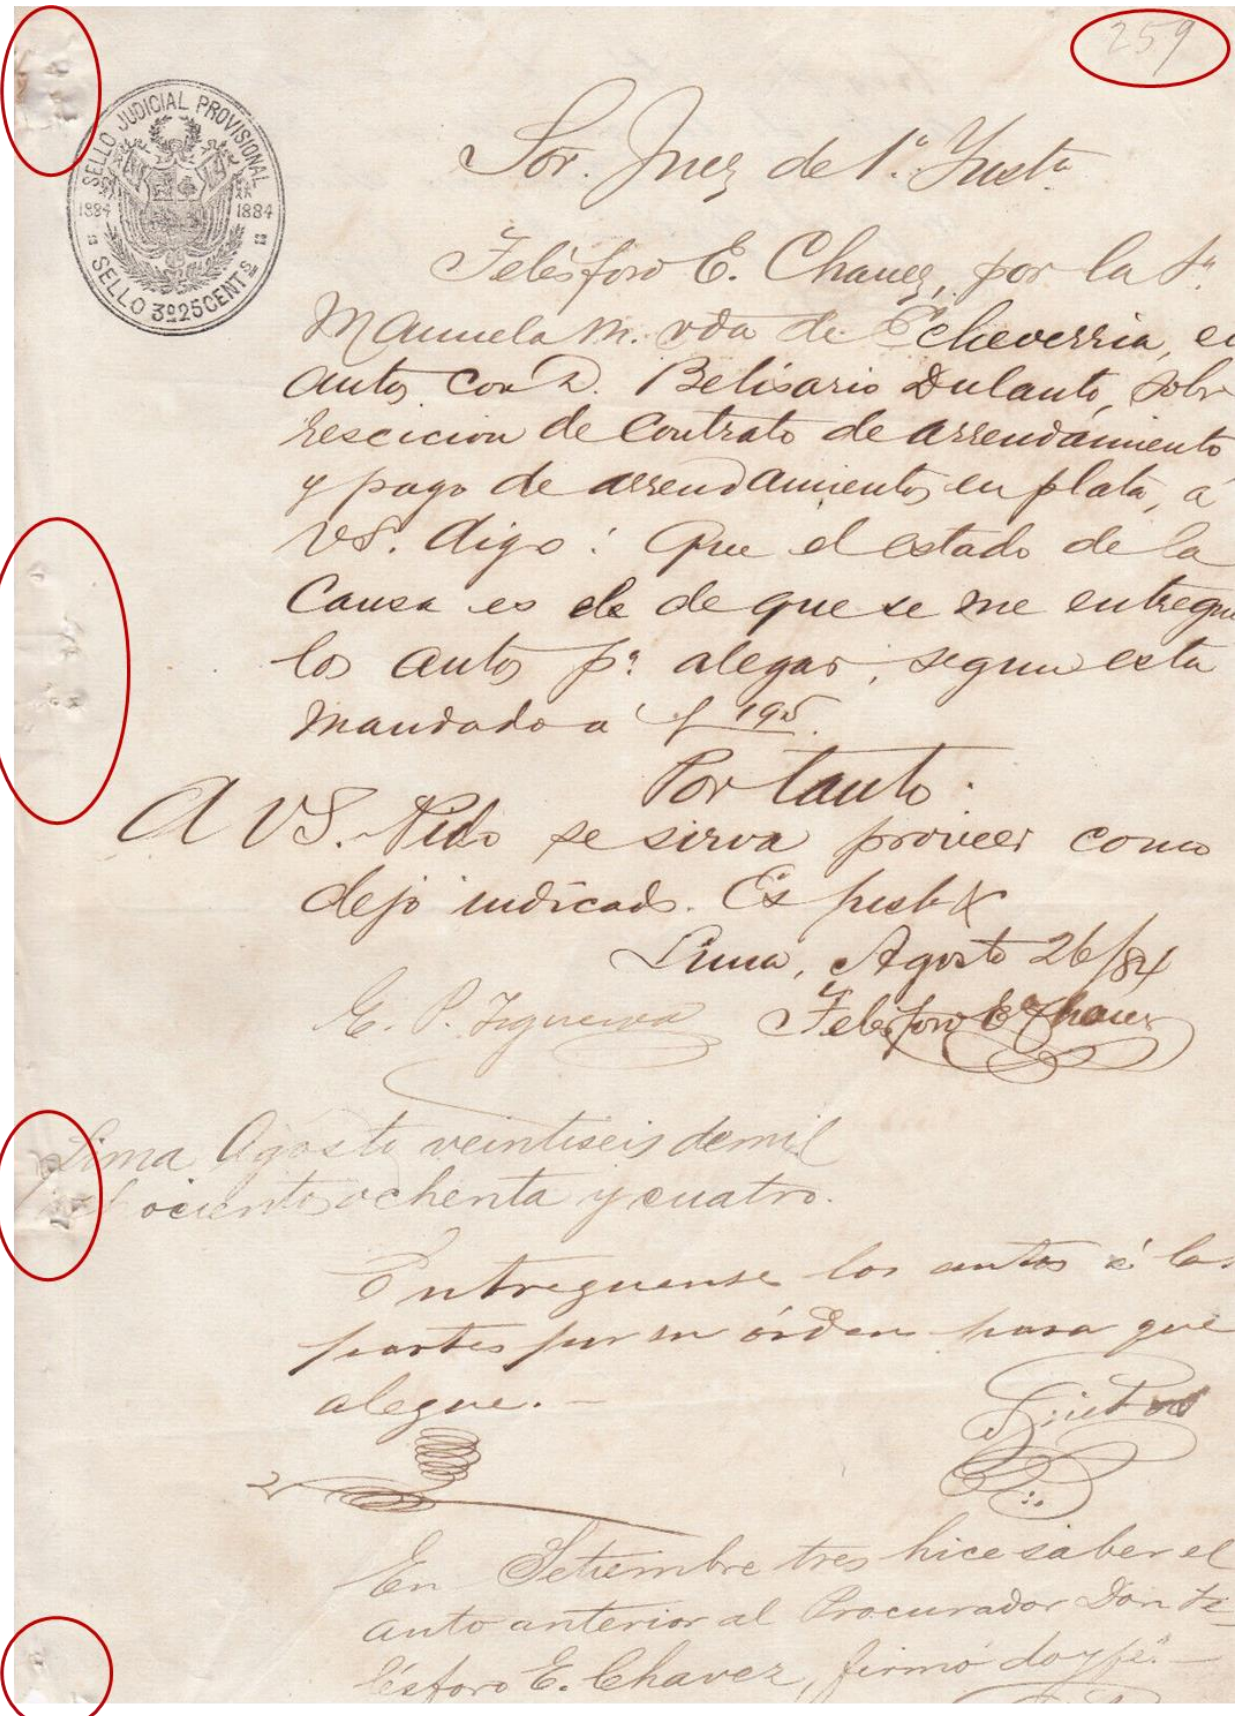 259
SELLO JUDICIAL PROVISIONAL
1884 1884
SELLO 3º 25 CENTS
Sor. Juez de 1ª Instª
Telésforo E. Chavez, por la Sª
Manuela M. vda de Echeverria, en
autos con D. Belisario Dulanto, sobre
rescicion de Contrato de arrendamiento
y pago de arrendamientos en plata, á
VS. digo: Que el estado de la
Causa es el de que se me entregue
los autos pª alegar, segun esta
mandado a f 195.
Por tanto:
A VS. Pido se sirva proveer como
dejo indicado. Es just&
Lima, Agosto 26/84
E. P. Figueroa Telesforo E. Chavez
Lima Agosto veintiseis de mil
ochocientos ochenta y cuatro.
Entreguense los autos á las
partes por su órden para que
alegue.—
En Setiembre tres hice saber el
auto anterior al Procurador Don Te-
lésforo E. Chavez, firmó doy fé.—